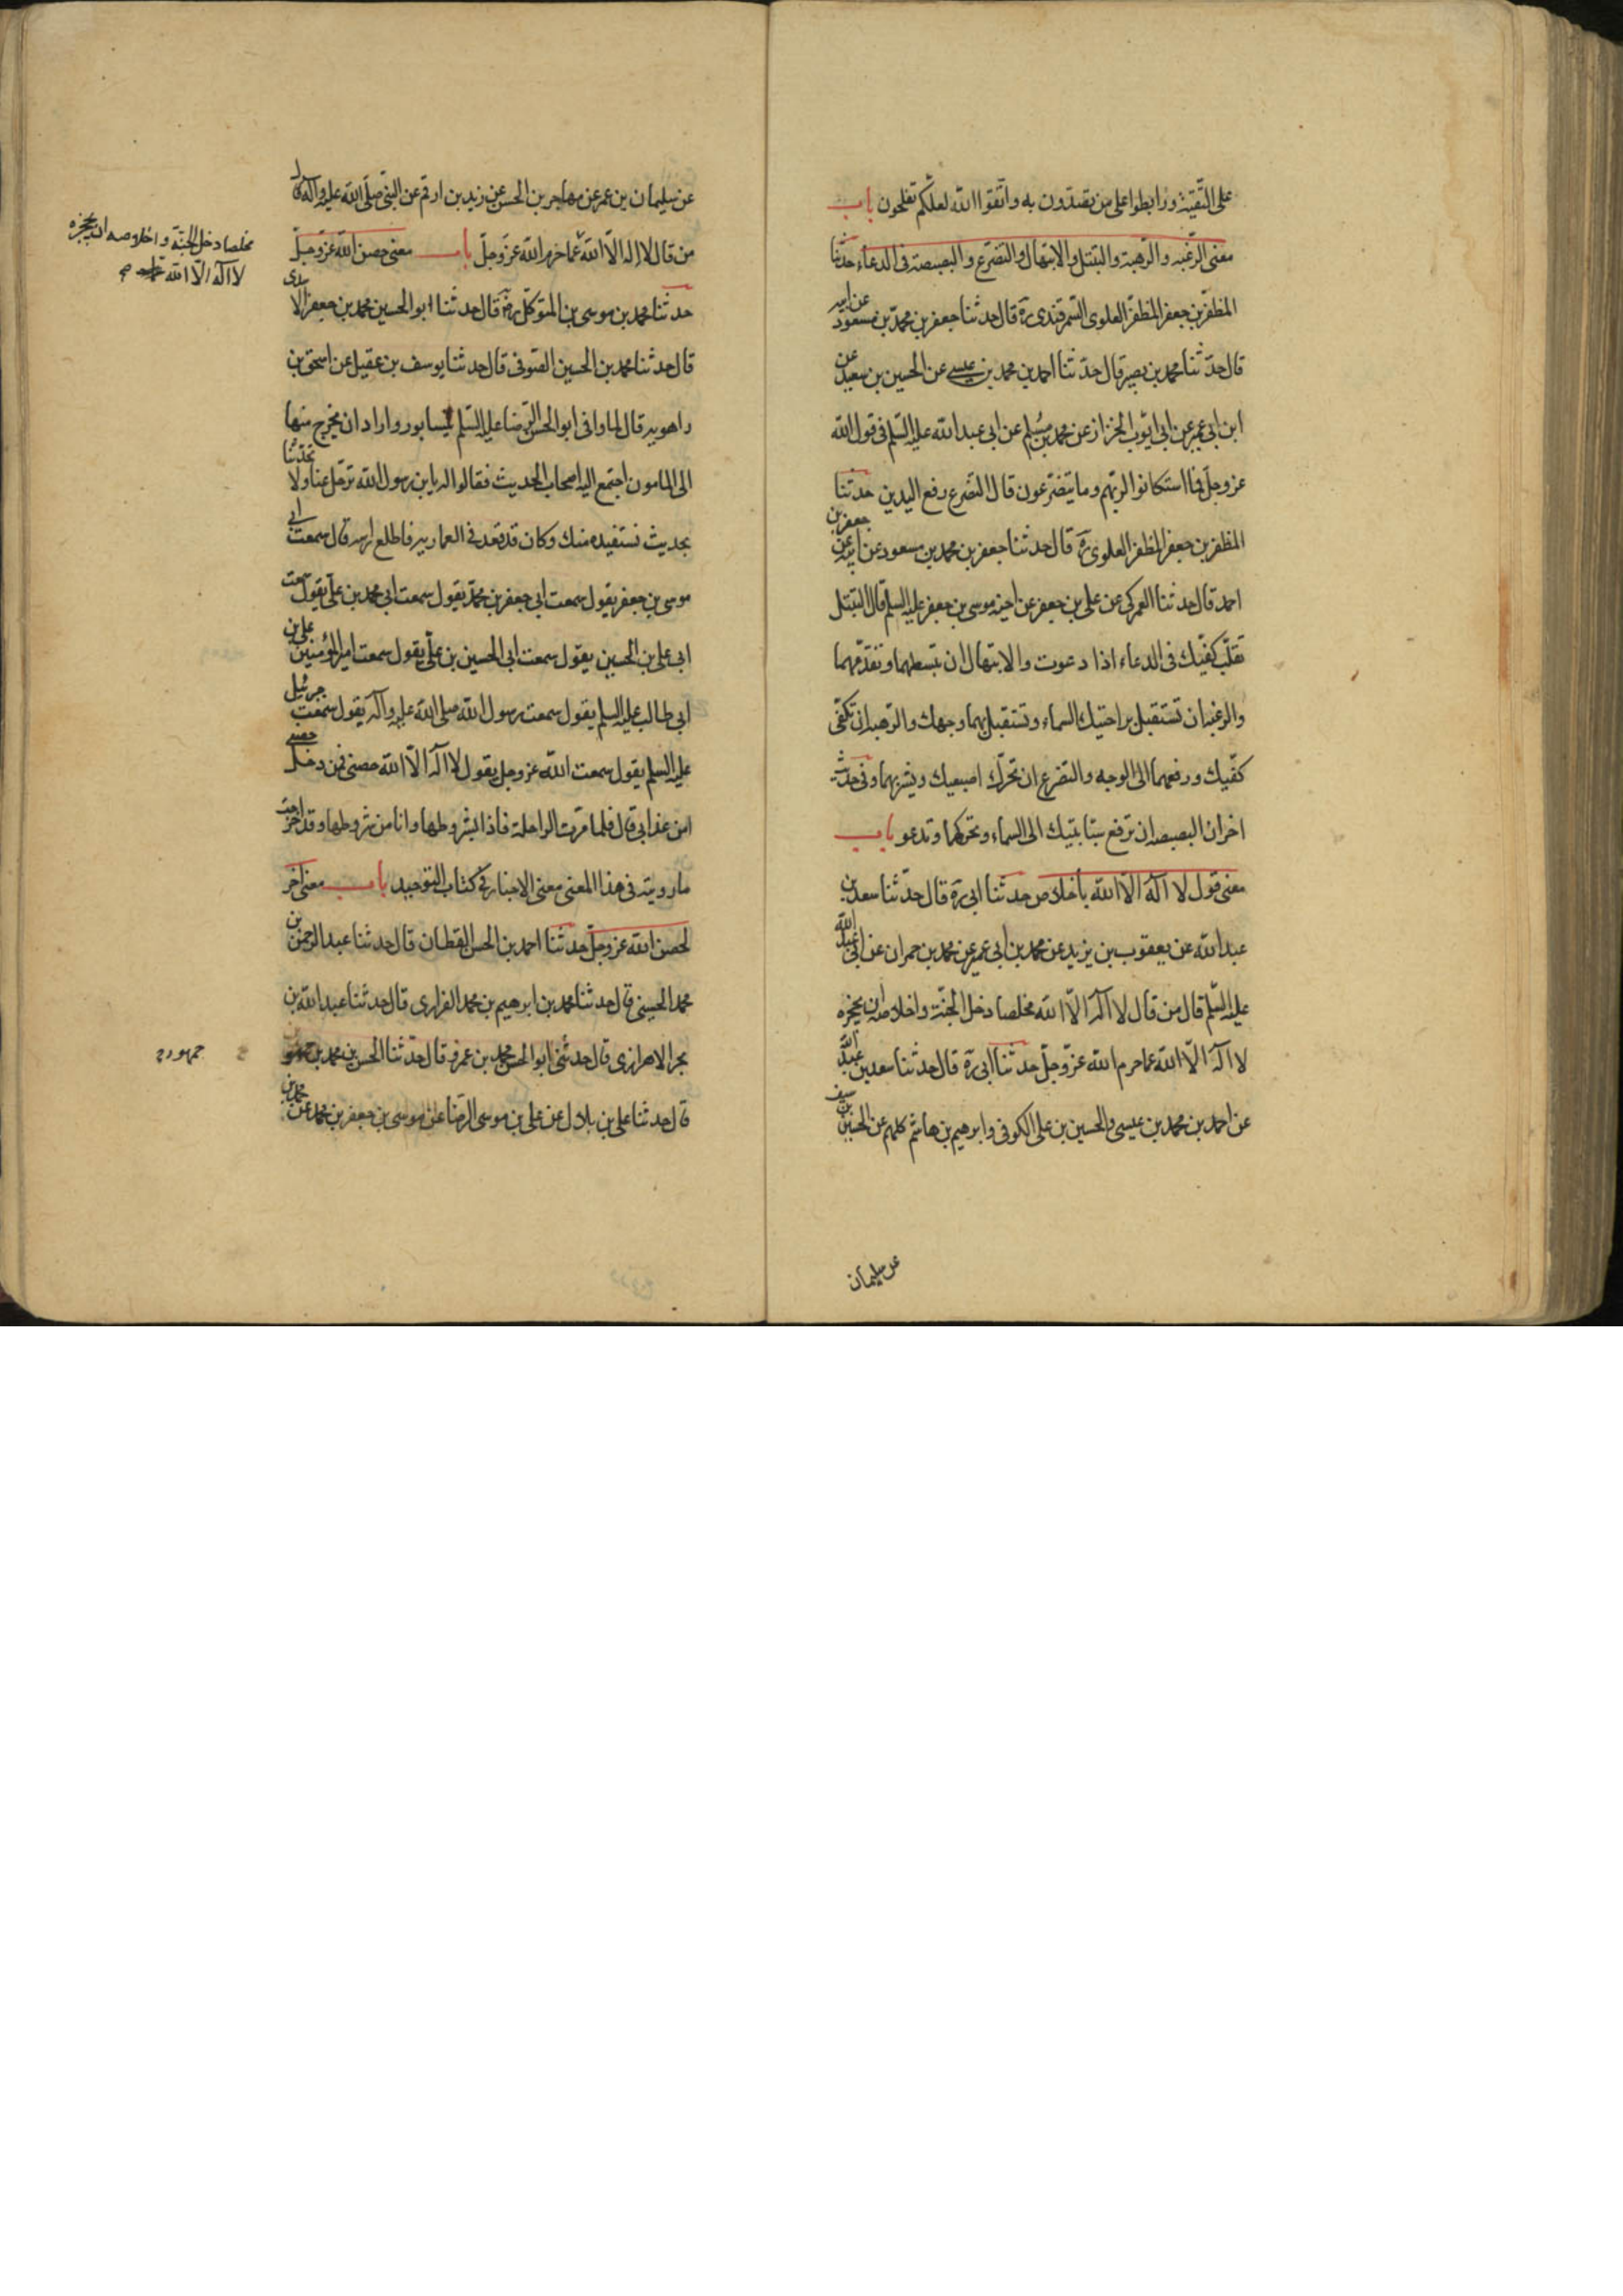 على التقية ورابطوا على من تقتدون به واتقوا الله لعلكم تفلحون باب
معنى الرغبه والرهبة والتبتل والابتهال والتضرع والبصبصة فى الدعاء حدثنا
المظفر بن جعفر المظفر العلوى السمرقندى ره قال حدثنا جعفر بن محمد بن مسعود عن ابيه
قال حدثنا محمد بن نصير قال حدثنا احمد بن محمد بن عيسى عن الحسين بن سعيد عن
ابن ابى عمير عن ابى ايوب الخزاز عن محمد بن مسلم عن ابى عبد الله عليه السلم فى قول الله
عز وجل فما استكانوا لربهم وما يتضرعون قال التضرع رفع اليدين حدثنا
المظفر بن جعفر المظفر العلوى ره قال حدثنا جعفر بن محمد بن مسعود عن ابيه عن جعفر بن
احمد قال حدثنا العمركى عن على بن جعفر عن اخيه موسى بن جعفر عليه السلم قال التبتل
تقلب كفيك فى الدعاء اذا دعوت والابتهال ان تبسطهما وتقدمهما
والرغبه ان تستقبل براحتيك السماء وتستقبل بهما وجهك والرهبه ان تكفى
كفيك ورفعهما الى الوجه والتضرع ان تحرك اصبعيك وتشير بهما وفى حديث
اخر ان البصبصه ان ترفع سبابتيك الى السماء وتحركهما وتدعو باب
معنى قول لا اله الا الله باخلاص حدثنا ابى ره قال حدثنا سعد بن
عبد الله عن يعقوب بن يزيد عن محمد بن ابى عمير عن محمد بن حمران عن ابى عبد الله
عليه السلم قال من قال لا اله الا الله مخلصا دخل الجنة واخلاصه ان يحجزه
لا اله الا الله عما حرم الله عز وجل حدثنا ابى ره قال حدثنا سعد بن عبد الله
عن احمد بن محمد بن عيسى والحسين بن على الكوفى وابرهيم بن هاشم كلهم عن الحسين بن سيف
عن سليمان
عن سليمان بن عمر عن مهاجر بن الحسن عن زيد بن ارقم عن النبى صلى الله عليه وآله قال
من قال لا اله الا الله عما حرم الله عز وجل باب معنى حصن الله عز وجل
مخلصا دخل الجنة واخلاصه ان يحجزه
لا اله الا الله
حدثنا محمد بن موسى بن المتوكل رضه قال حدثنا ابو الحسين محمد بن جعفر الاسدى
قال حدثنا محمد بن الحسين الصوفى قال حدثنا يوسف بن عقيل عن اسحق بن
راهويه قال لما وافى ابو الحسن الرضا عليه السلم نيسابور واراد ان يخرج منها
الى المامون اجتمع اليه اصحاب الحديث فقالوا له يا بن رسول الله ترحل عنا ولا تحدثنا
بحديث نستفيده منك وكان قد قعد فى العماريه فاطلع راسه قال سمعت ابى
موسى بن جعفر يقول سمعت ابى جعفر بن محمد يقول سمعت ابى محمد بن على يقول سمعت
ابى على بن الحسين يقول سمعت ابى الحسين بن على يقول سمعت امير المؤمنين على بن
ابى طالب عليه السلم يقول سمعت رسول الله صلى الله عليه وآله يقول سمعت جبرئيل
عليه السلم يقول سمعت الله عز وجل يقول لا اله الا الله حصنى فمن دخل حصنى
امن عذابى قال فلما مرت الراحلة فاذا بشروطها وانا من شروطها وقد اخرجت
ما رويته فى هذا المعنى معنى الاخبار فى كتاب التوحيد باب معنى اخر
لحصن الله عز وجل حدثنا احمد بن الحسن القطان قال حدثنا عبد الرحمن بن
محمد الحسينى قال حدثنا محمد بن ابرهيم بن محمد الفزارى قال حدثنا عبد الله بن
بحر الاهوازى قال حدثنى ابو الحسن محمد بن عمرو قال حدثنا الحسن بن محمد بن جمهور
جمهور
قال حدثنا على بن بلال عن على بن موسى الرضا عن موسى بن جعفر بن محمد عن محمد بن